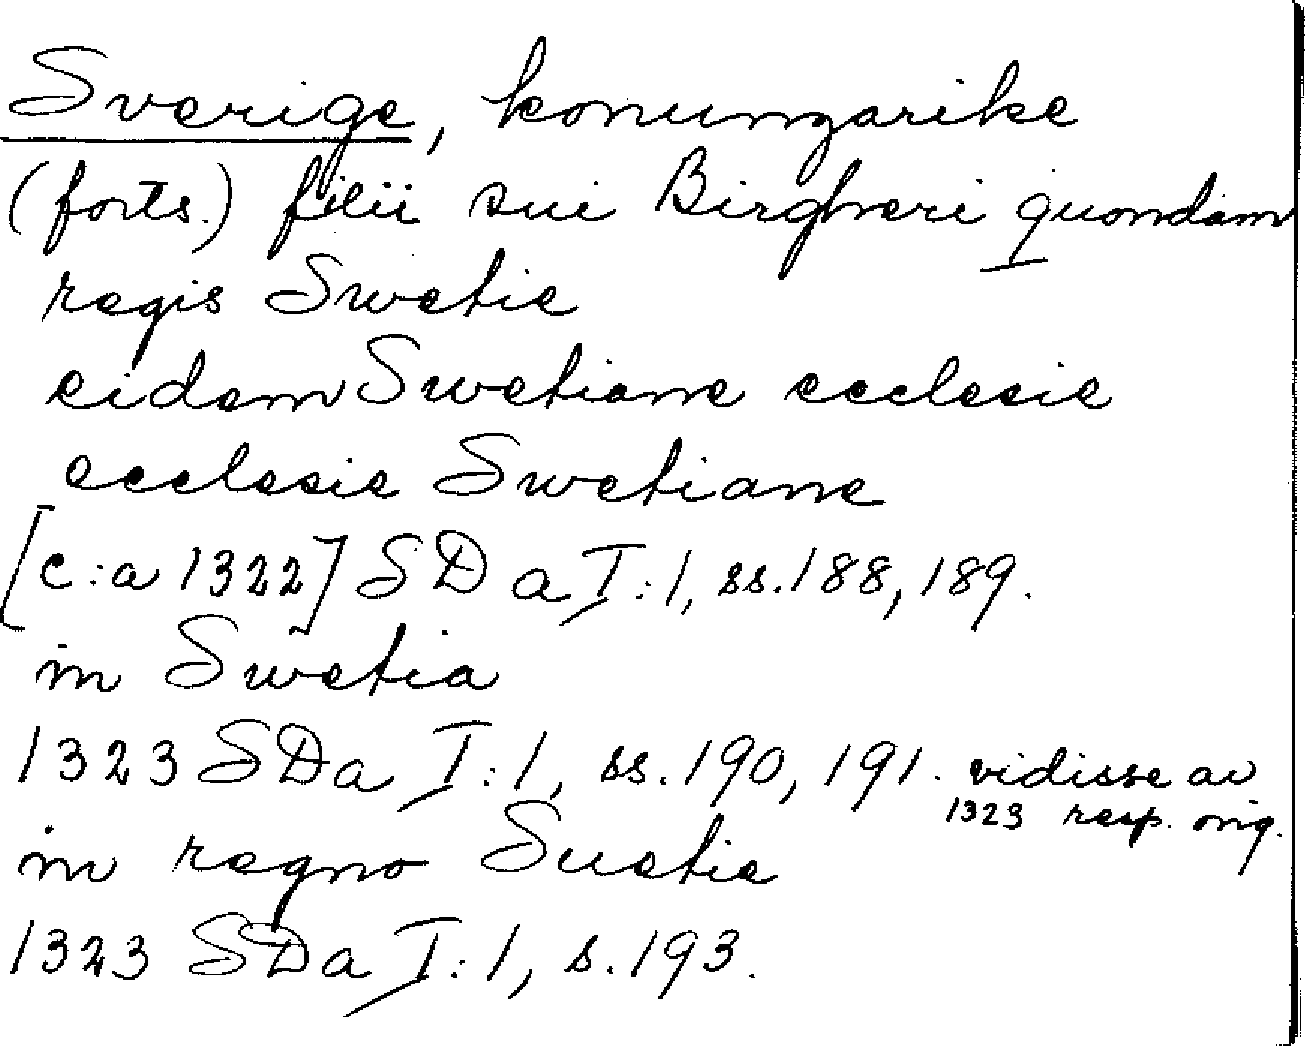 Sverige, konungarike
(forts.) filii sui Birgheri quondam
regis Swetie
eidem Swetiane ecclesie
ecclesie Swetiane
[c:a 1322] SD a I:1, ss. 188, 189.
in Swetia
1323 SDa I:1, ss. 190, 191. vidisse av
1323 resp. orig.
in regno Suetie
1323 SDa I:1, s. 193.